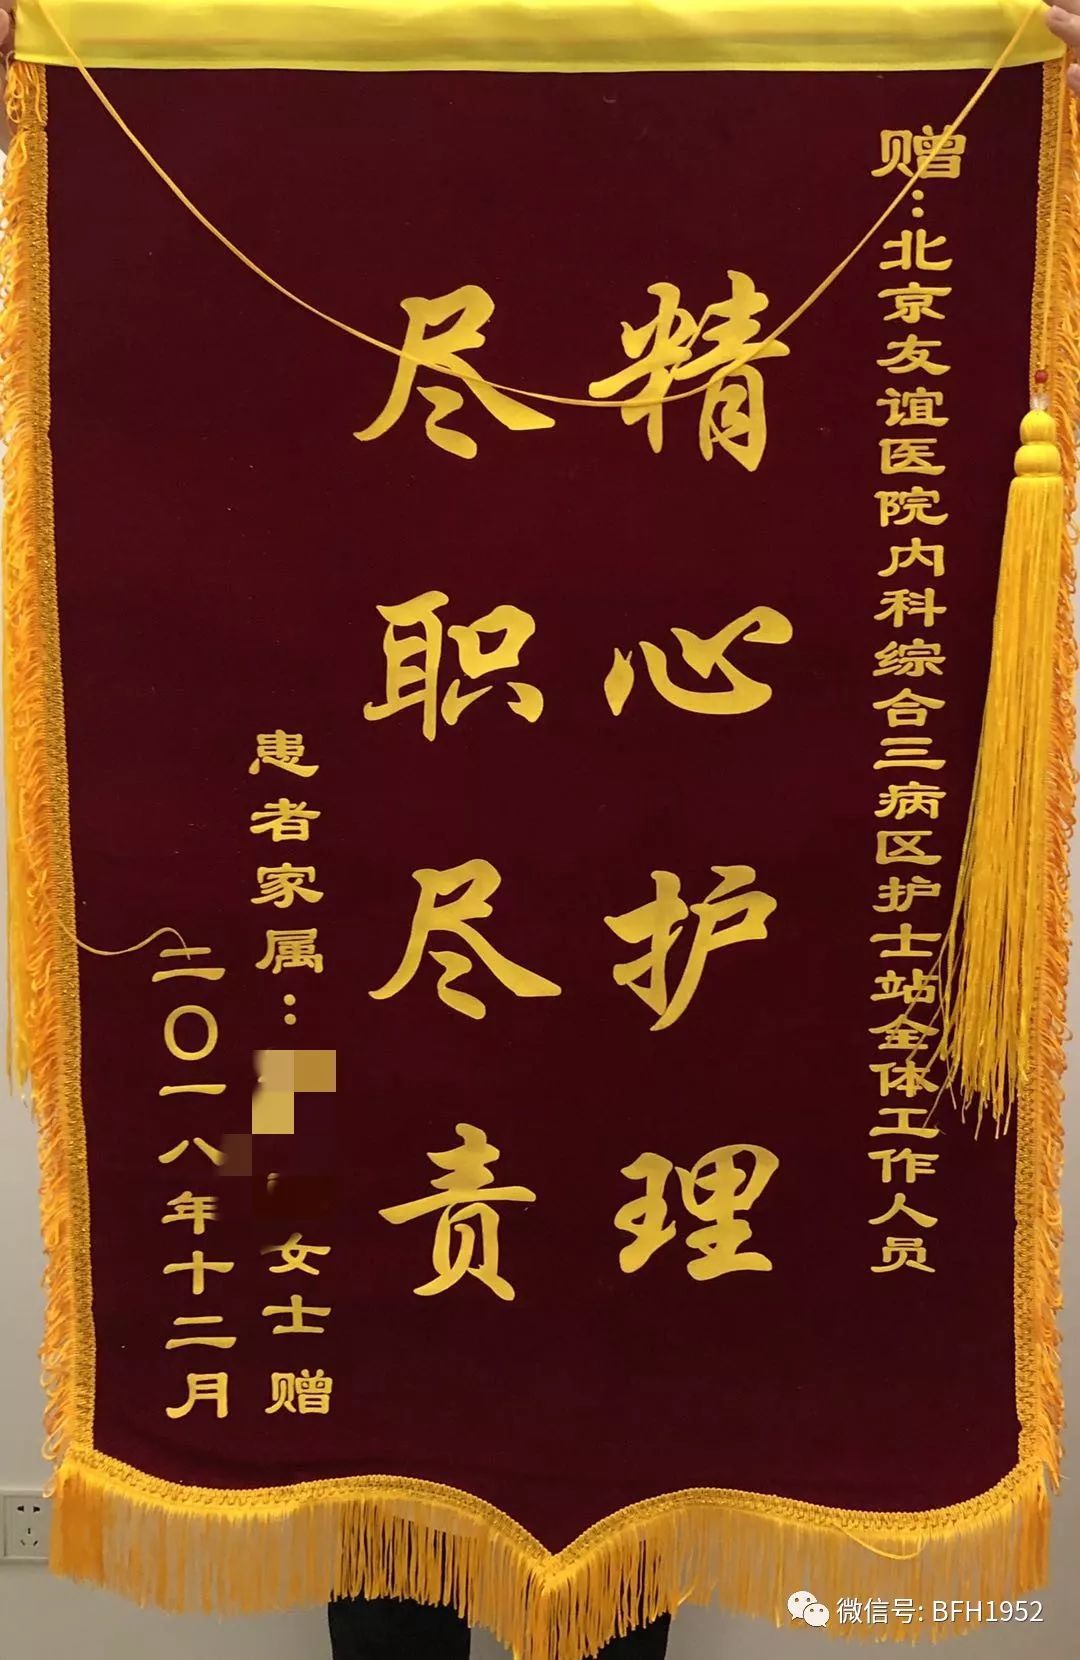 赠：北京友谊医院内科综合三病区护士站全体工作人员
精心护理
尽职尽责
患者家属：
女士 赠
二〇一八年十二月
微信号: BFH1952